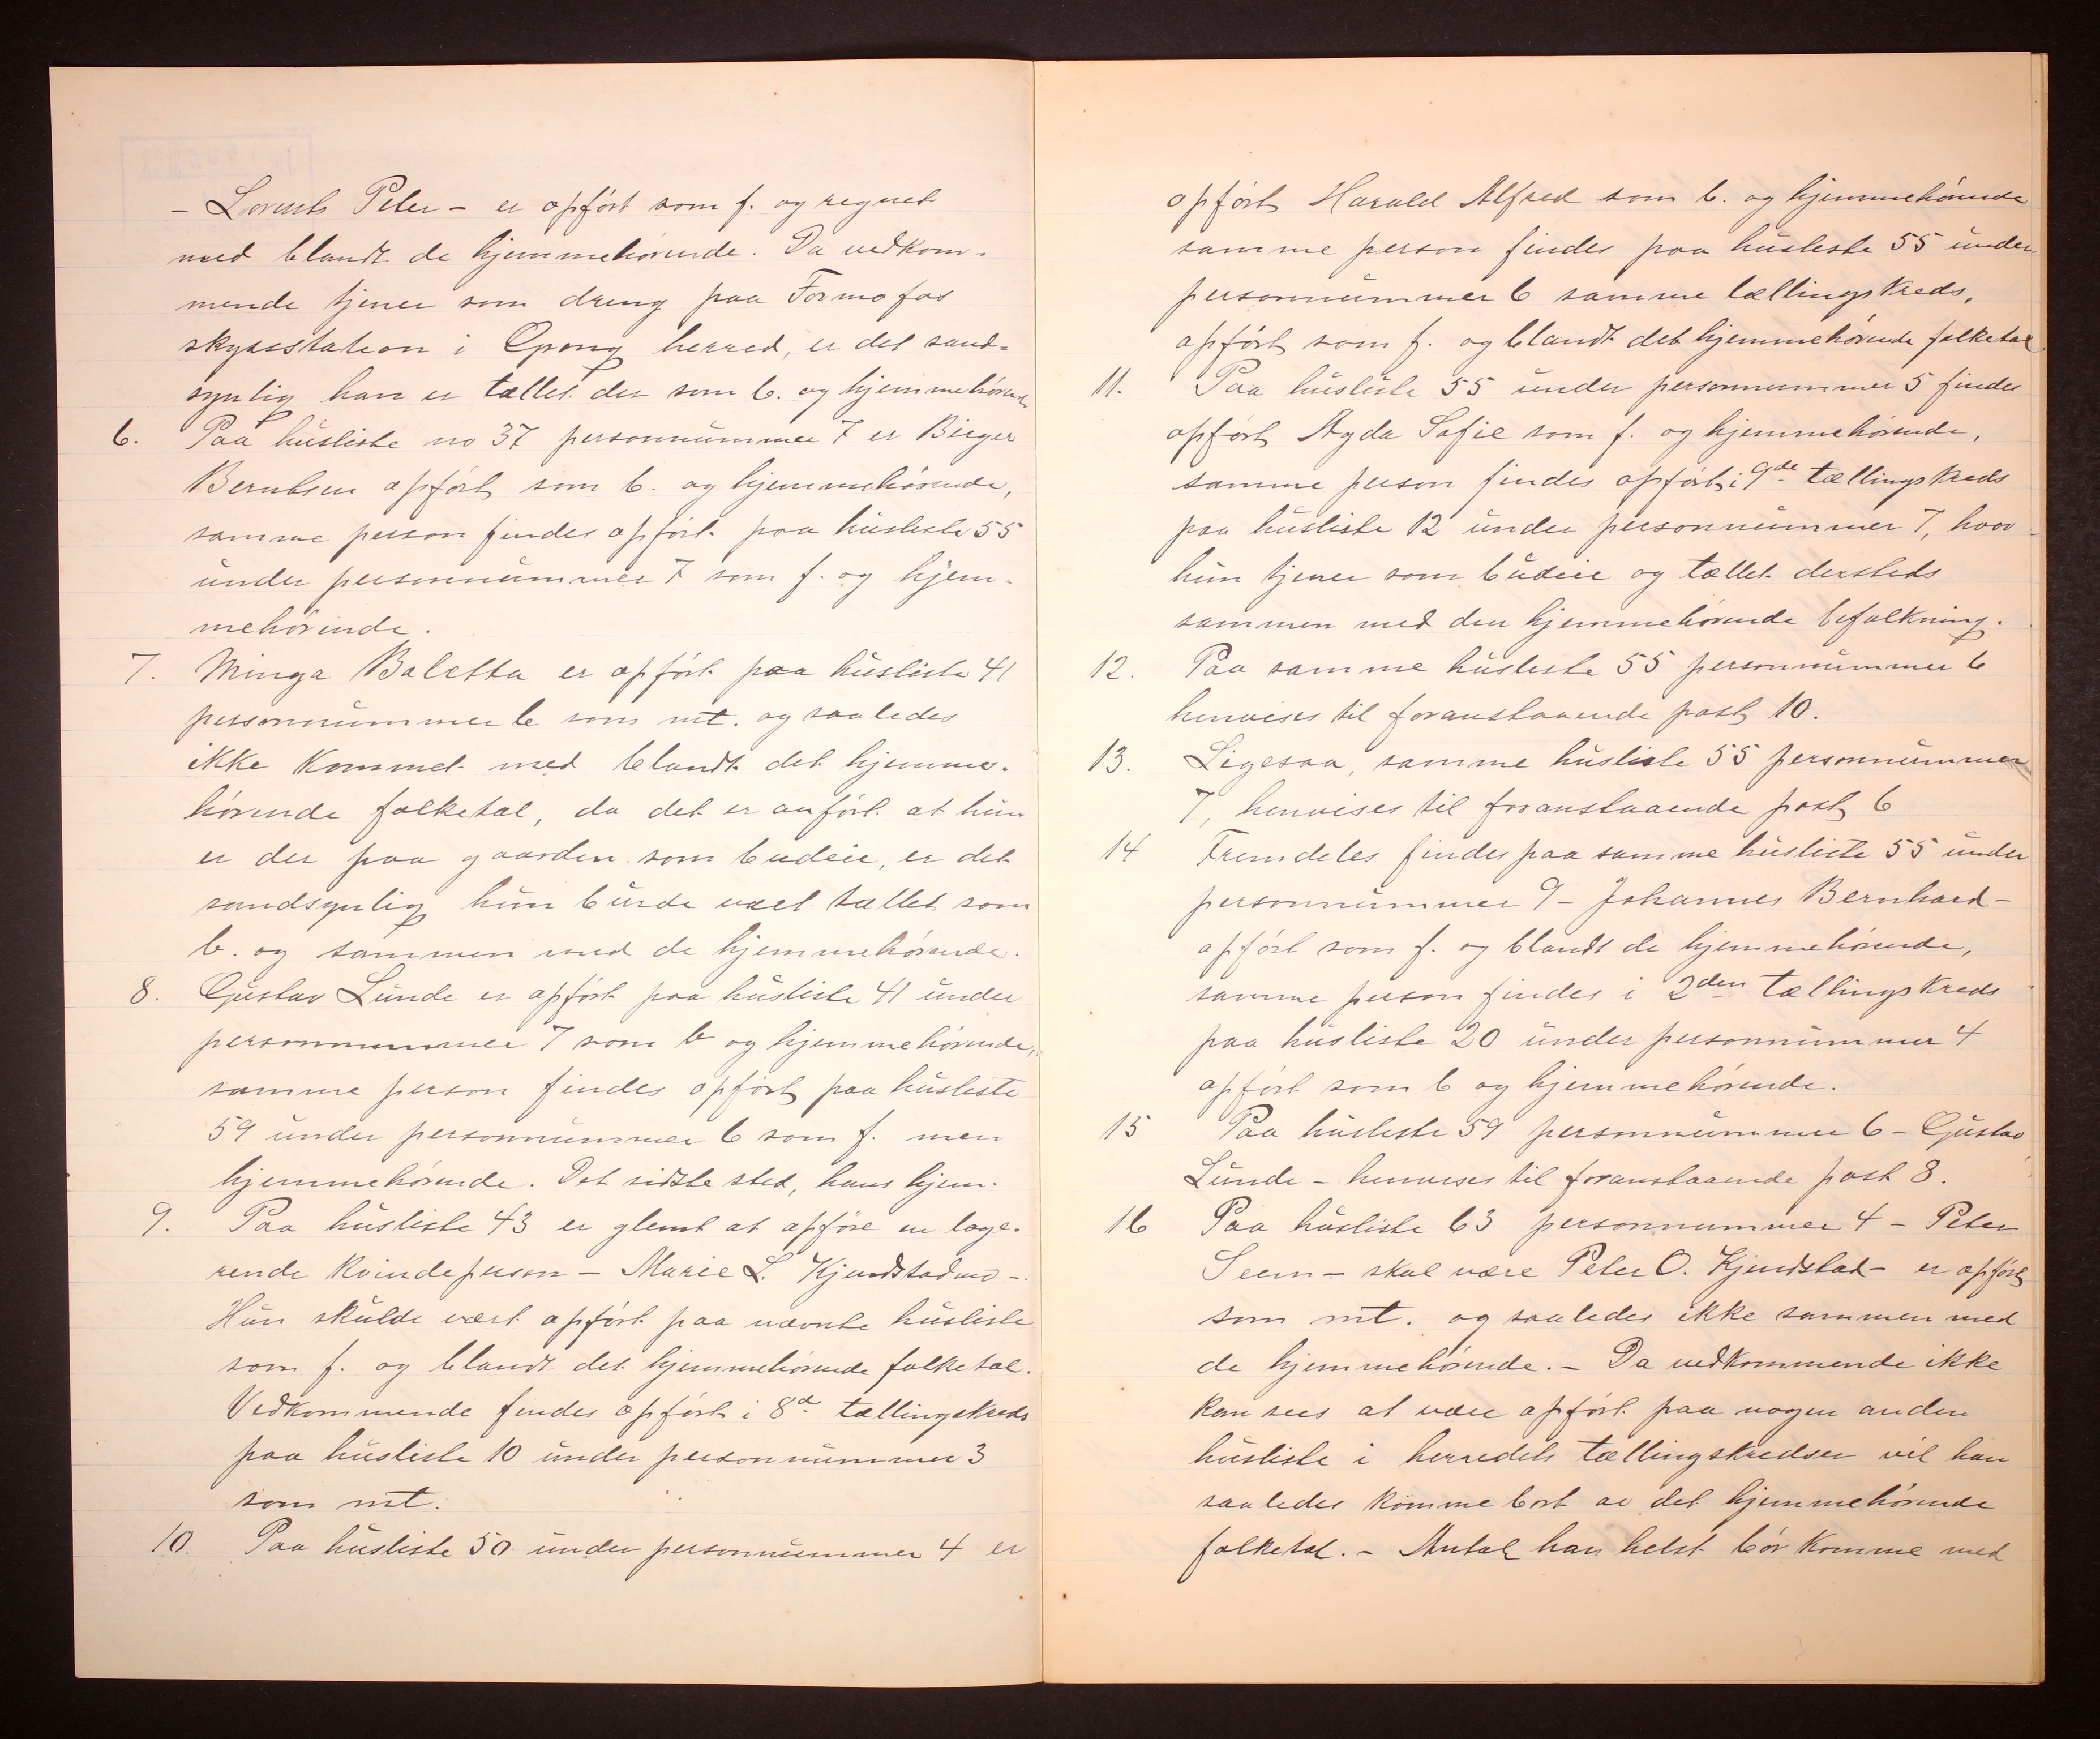 - Lorents Peter - er opført som f. og regnet
med blandt de hjemmehørende. Da vedkom-
mende tjener som dreng paa Formofos
skysstation i Grong herred, er det sand-
synlig han er tællet der som b. og hjemmehørende
6. Paa husliste no 37 personnummer 7 er Birger
Berntsen opført som b. og hjemmehørende,
samme person findes opført paa husliste 55
under personnummer 7 som f. og hjem-
mehørende.
7. Minga Baletta er opført paa husliste 41
personnummer 6 som mt. og saaledes
ikke kommet med blandt det hjemme-
hørende folketal, da det er anført at hun
er der paa gaarden som budeie, er det
sandsynlig hun burde vært tællet som
b. og sammen med de hjemmehørende.
8. Gustav Lunde er opført paa husliste 41 under
personnummer 7 som b og hjemmehørende,
samme person findes opført paa husliste
59 under personnummer 6 som f. men
hjemmehørende. Det sidste sted, hans hjem.
9. Paa husliste 43 er glemt at opføre en loge-
rende kvindeperson - Marie L. Kjendstadmo -
Hun skulde vært opført paa nævnte husliste
som f. og blandt det hjemmehørende folketal.
Vedkommende findes opført i 8d tællingskreds
paa husliste 10 under personnummer 3
som mt.
10. Paa husliste 50 under personnummer 4 er
opført Harald Alfred som b. og hjemmehørende
samme person findes paa husliste 55 under
personnummer 6 samme tællingskreds,
opført som f. og blandt det hjemmehørende folketal
11. Paa husliste 55 under personnummer 5 findes
opført Agda Sofie som f. og hjemmehørende,
samme person findes opført i 9de tællingskreds
paa husliste 12 under personnummer 7, hvor
hun tjener som budeie og tællet dersteds
sammen med den hjemmehørende befolkning.
12. Paa samme husliste 55 personnummer 6
henvises til foranstaaende post 10.
13. Ligesaa, samme husliste 55 personnummer
7, henvises til foranstaaende post 6
14 Fremdeles findes paa samme husliste 55 under
personnummer 9 - Johannes Bernhard -
opført som f. og blandt de hjemmehørende,
samme person findes i 2den tællingskreds
paa husliste 20 under personnummer 4
opført som b og hjemmehørende.
15 Paa husliste 59 personnummer 6 - Gustav
Lunde - henvises til foranstaaende post 8.
16 Paa husliste 63 personnummer 4 - Peter
Seem - skal være Peter O. Kjendstad - er opført
som mt. og saaledes ikke sammen med
de hjemmehørende. - Da vedkommende ikke
kan sees at være opført paa nogen anden
husliste i herredets tællingskredser vil han
saaledes komme bort av det hjemmehørende
folketal. - Antal han helst bør komme med